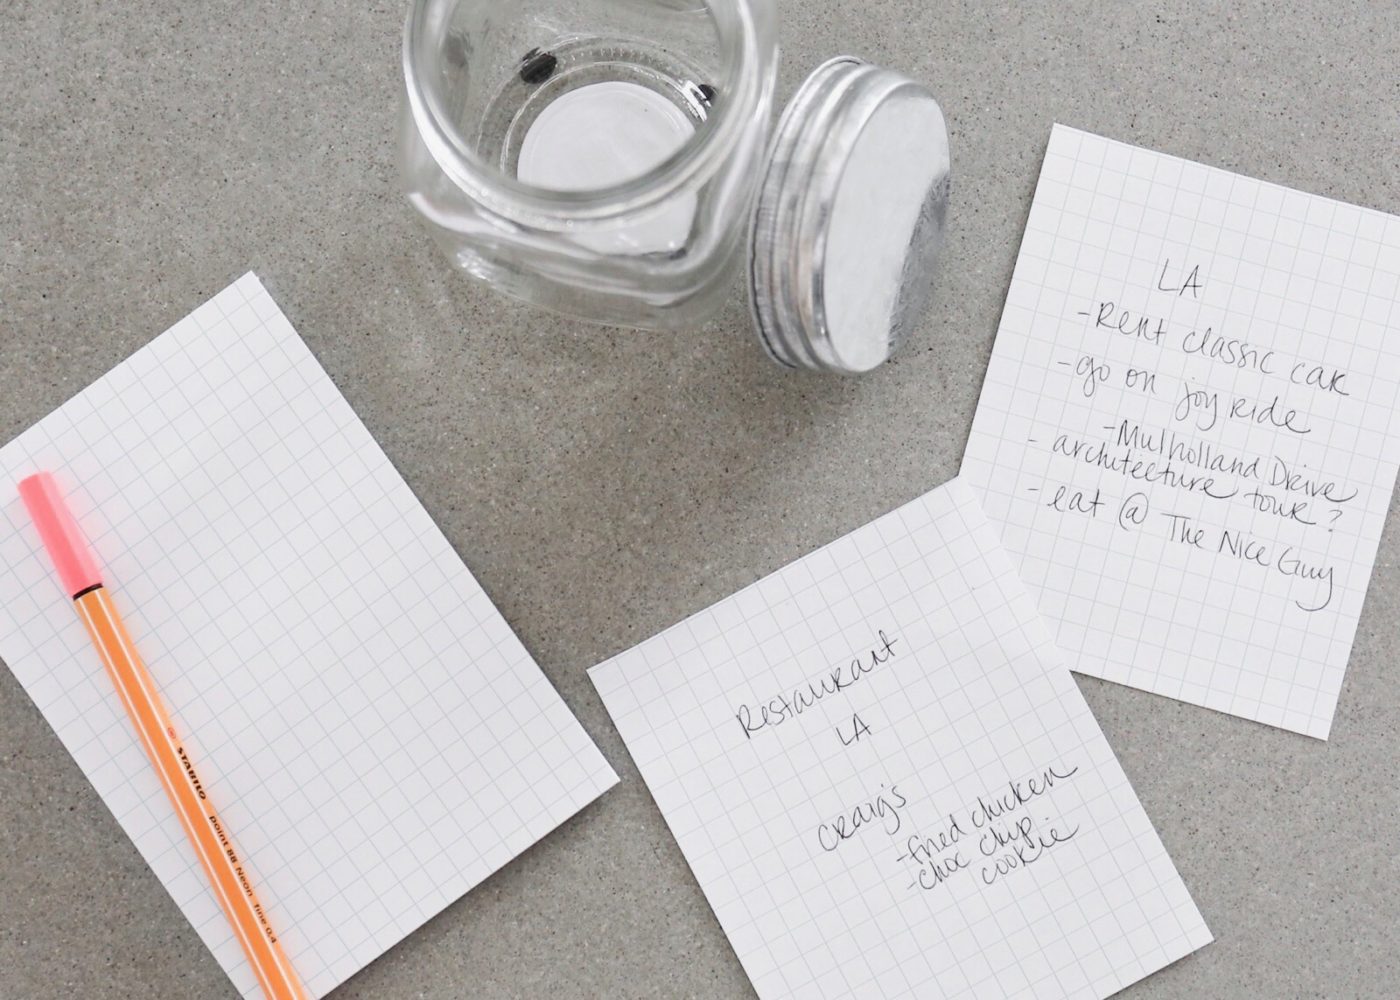 LA
- Rent classic car
- go on joy ride
- Mulholland Drive
- architecture tour?
- eat @ The Nice Guy
Restaurant
LA
Craig's
- fried chicken
- choc chip
cookie
® STABILO point 88 Neon fine 0.4